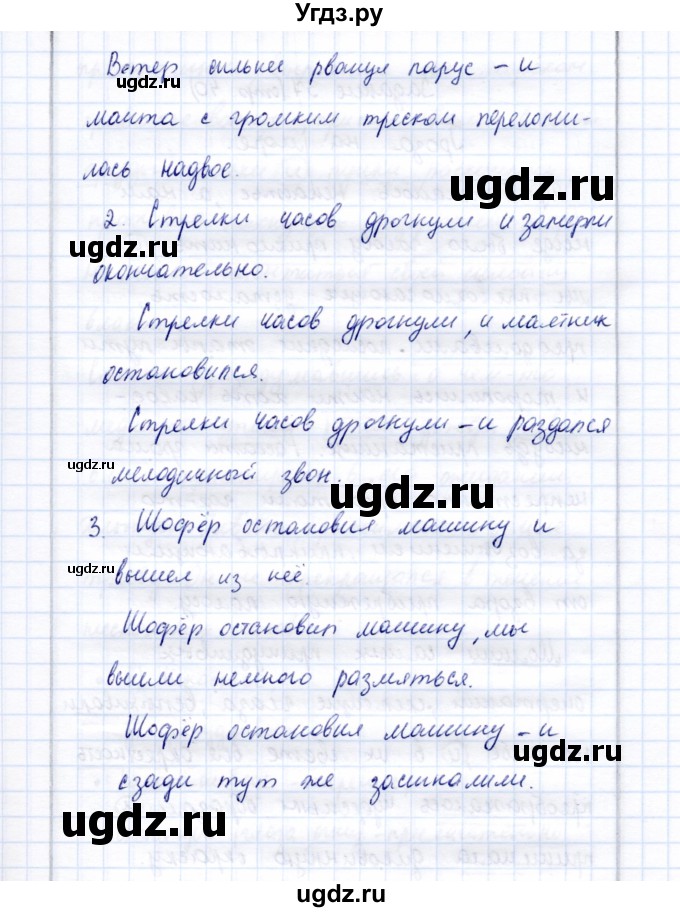 Угдз.ру
Ветер сильнее рванул парус – и
ugdz.ru
мачта с громким треском переломи-
лась надвое.
ugdz.ru
2. Стрелки часов дрогнули и замерли
ugdz.ru
окончательно.
Стрелки часов дрогнули, и маятник
остановился.
Стрелки часов дрогнули – и раздался
ugdz.ru
мелодичный звон.
ugdz.ru
3. Шофёр остановил машину и
ugdz.ru
вышел из неё.
Шофёр остановил машину, мы
вышли немного размяться.
Шофёр остановил машину – и
ugdz.ru
сзади тут же засигналили.
ugdz.ru
ugdz.ru